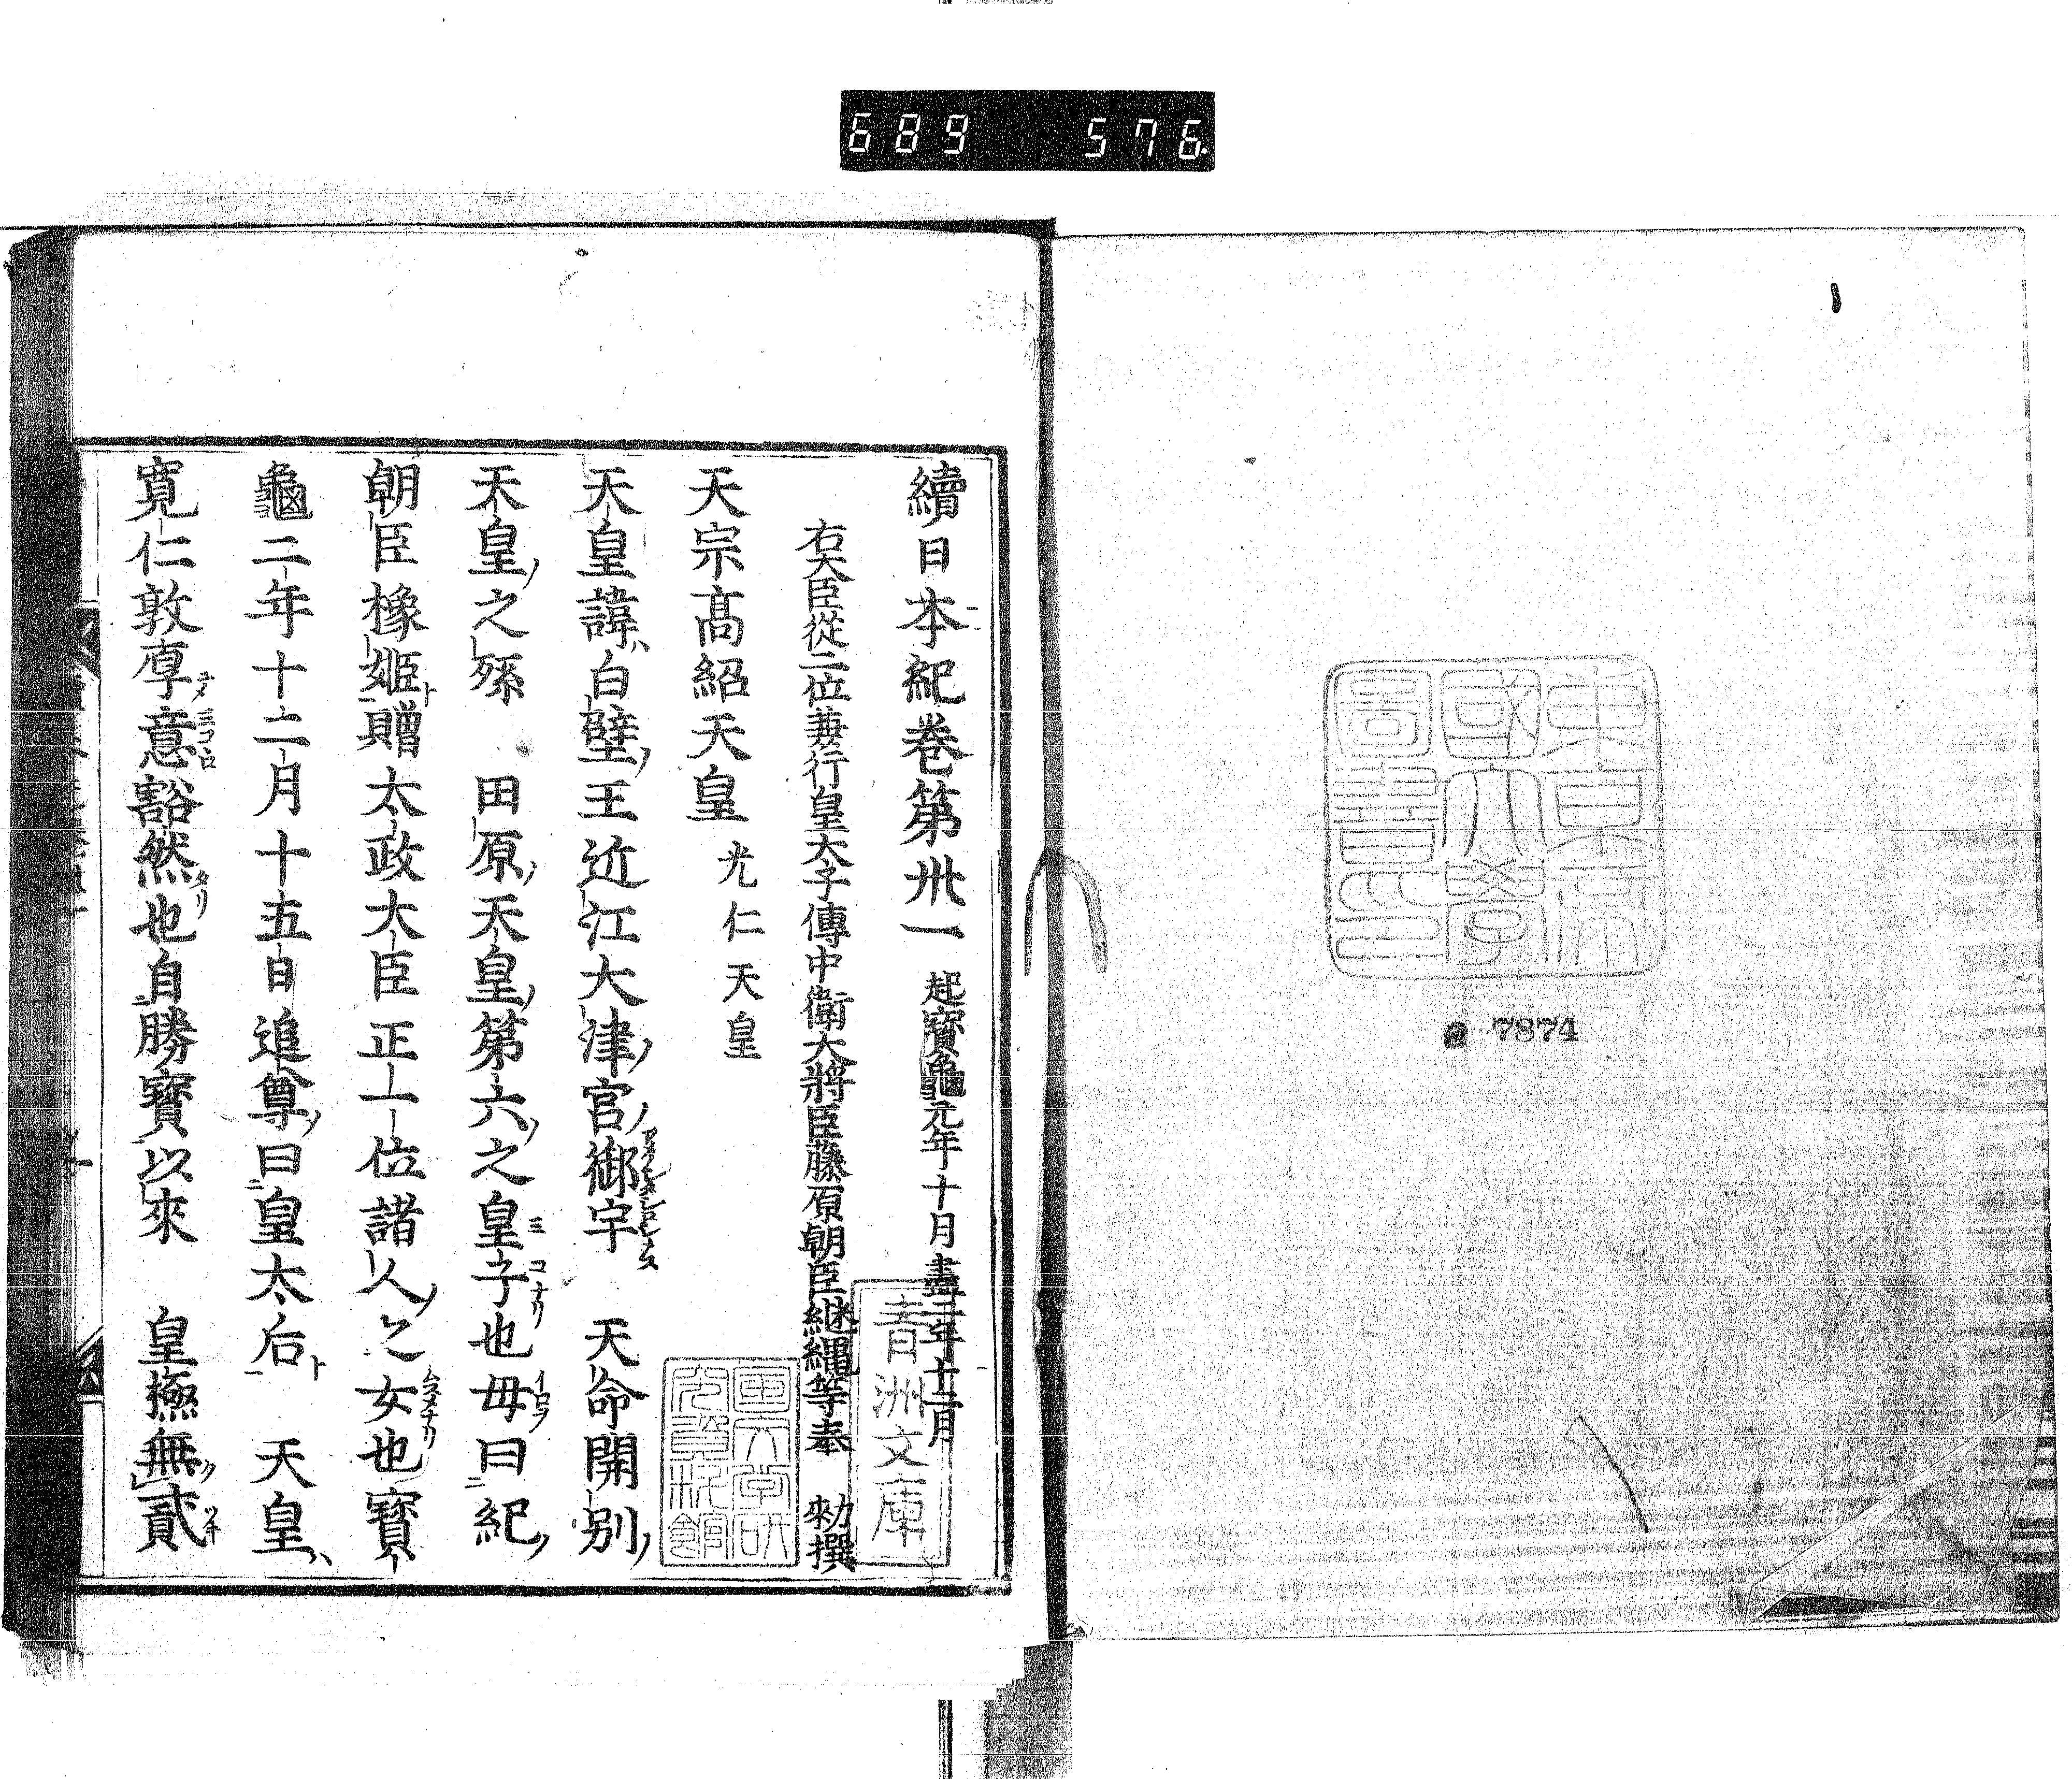 689 576
東京帝
國大學
圖書印
7874
續日本紀卷第卅一 起寶龜元年十月盡二年十二月
右大臣從二位兼行皇太子傳中衛大將臣藤原朝臣継縄等奉 勅撰
天宗髙紹天皇 光仁天皇
天皇諱白壁王近江大津宮御宇 天命開別
天皇之孫 田原天皇第六之皇子也母曰紀
朝臣橡姫贈太政大臣正一位諸人之女也寶
龜二年十二月十五日追尊曰皇太后 天皇
寬仁敦厚意豁然也自勝寶以來 皇極無貳
青洲文庫
国文学研
究資料館